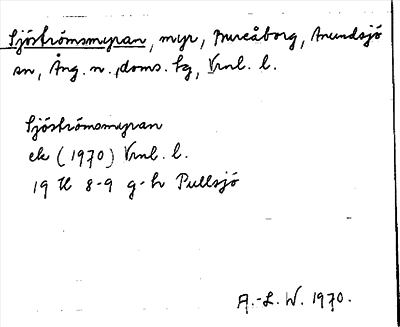 Sjöströmsmyran, myr, Mureåborg, Anundsjö
sn, Ång. n. doms. tg, Vrnl. l.
Sjöströmsmyran
ek (1970) Vrnl. l.
19 H 8-9 g-h Pullsjö
A.-L. W. 1970.